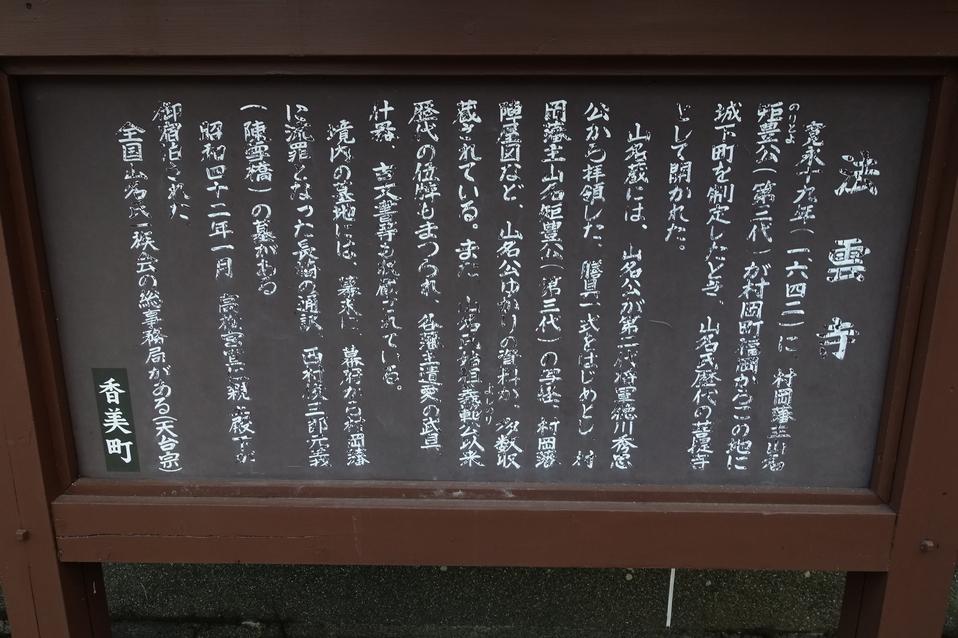 法雲寺
寛永十九年(一六四二)に、村岡藩主山名
のりとよ
矩豊公(第三代)が村岡町福岡からこの地に
城下町を制定したとき、山名氏歴代の菩提寺
として開かれた。
山名蔵には、山名公が第二代将軍徳川秀忠
公から拝領した、膳具一式をはじめとし、村
岡藩主山名矩豊公(第三代)の写経、村岡藩
陣屋図など、山名公ゆかりの資料が、多数収
蔵されている。また、山名氏始祖義範公以来
よしのり
歴代の位牌もまつられ、各藩主遺愛の武具、
什器、古文書等も収蔵されている。
境内の墓地には、幕末に、幕府から村岡藩
に流罪となった長崎の通訳、西村俊三郎元義
(陳雪橋)の墓がある
昭和四十二年一月 高松宮宣仁親王殿下が
御宿泊された
全国山名氏一族会の総事務局がある(天台宗)
香美町